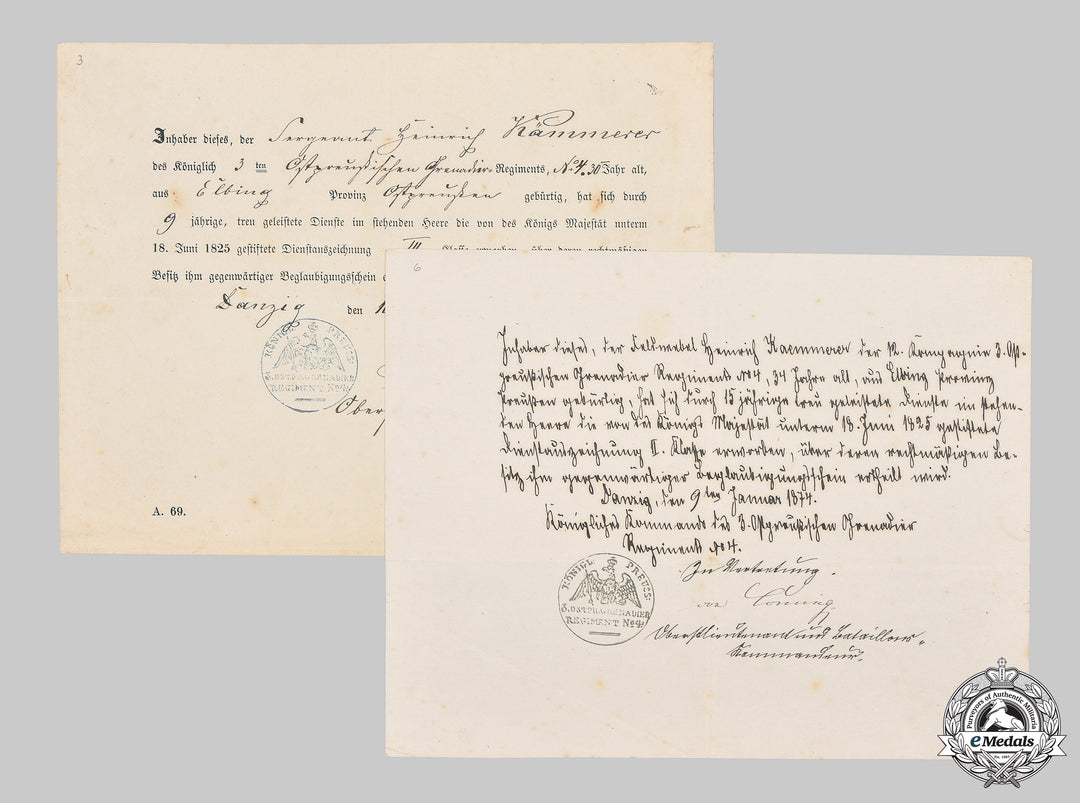 3
Inhaber dieses, der Sergeant Heinrich Kämmerer
des Königlich 3 ten Ostpreußischen Grenadier-Regiments, No 4. 30 Jahr alt,
aus Elbing Provinz Ostpreußen gebürtig, hat sich durch
9 jährige, treu geleistete Dienste im stehenden Heere die von des Königs Majestät unterm
18. Juni 1825 gestiftete Dienstauszeichnung III Klasse erworben, über deren rechtmäßigen
Besitz ihm gegenwärtiger Beglaubigungsschein
Danzig den
KÖNIGL. PREUSS:
3. OSTPR. GRENADIER
REGIMENT No 4.
Ober
A. 69.
6
Inhaber dieses, der Feldwebel Heinrich Kaemmerer der 12. Kompagnie 3. Ost-
preußischen Grenadier Regiments No 4, 34 Jahre alt, aus Elbing Provinz
Preußen gebürtig, hat sich durch 15 jährige treu geleistete Dienste im stehen-
den Heere die von des Königs Majestät unterm 18. Juni 1825 gestiftete
Dienstauszeichnung II. Klasse erworben, über deren rechtmäßigen Be-
sitz ihm gegenwärtiger Beglaubigungsschein ertheilt wird.
Danzig, den 9 ten Januar 1874.
Königliches Kommando des 3. Ostpreußischen Grenadier
Regiments No 4.
In Vertretung.
KÖNIGL. PREUSS:
3. OSTPR. GRENADIER
REGIMENT No 4.
Oberstlieutenant und Bataillons-
Kommandeur.
Purveyors of Authentic Militaria
eMedals